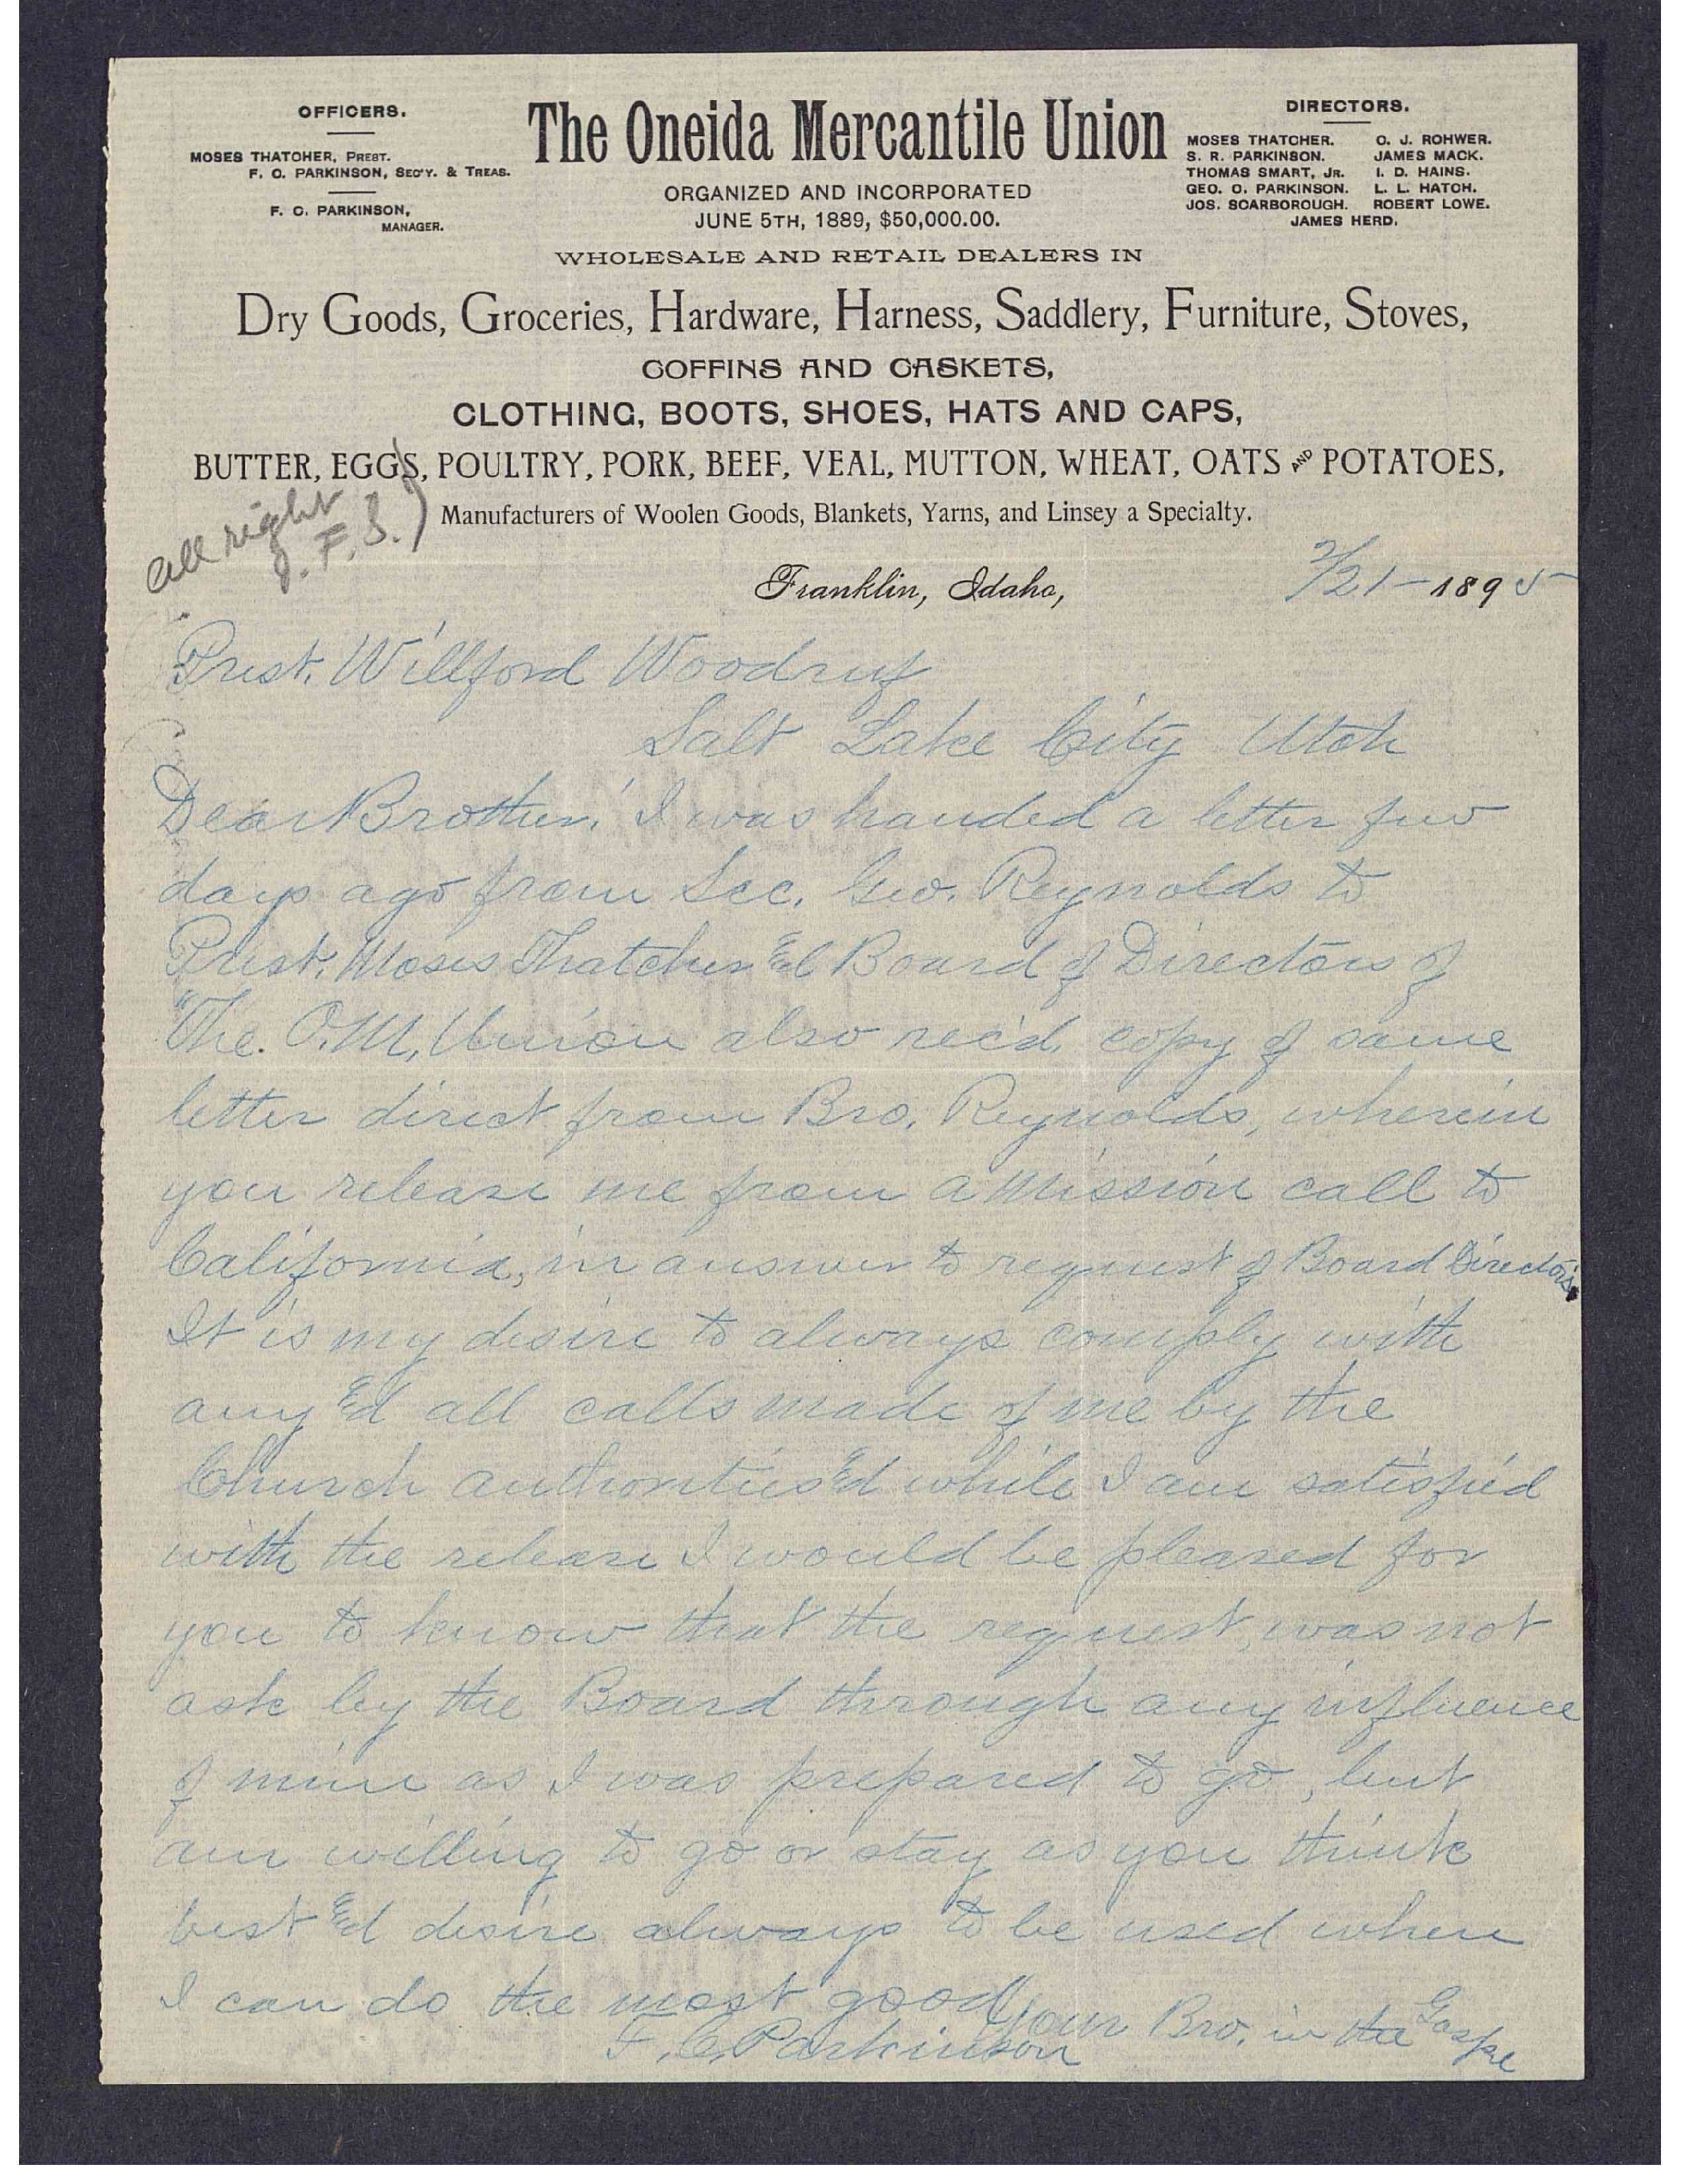 OFFICERS.
MOSES THATCHER, PREST.
F. C. PARKINSON, SEC'Y. & TREAS.
F. C. PARKINSON,
MANAGER.
The Oneida Mercantile Union
ORGANIZED AND INCORPORATED
JUNE 5TH, 1889, $50,000.00.
DIRECTORS.
MOSES THATCHER. C. J. ROHWER.
S. R. PARKINSON. JAMES MACK.
THOMAS SMART, JR. I. D. HAINS.
GEO. C. PARKINSON. L. L. HATCH.
JOS. SCARBOROUGH. ROBERT LOWE.
JAMES HERD.
WHOLESALE AND RETAIL DEALERS IN
Dry Goods, Groceries, Hardware, Harness, Saddlery, Furniture, Stoves,
COFFINS AND CASKETS,
CLOTHING, BOOTS, SHOES, HATS AND CAPS,
BUTTER, EGGS, POULTRY, PORK, BEEF, VEAL, MUTTON, WHEAT, OATS AND POTATOES,
Manufacturers of Woolen Goods, Blankets, Yarns, and Linsey a Specialty.
all right
J. F. S.)
Franklin, Idaho, 2/21-1895
Prest. Willford Woodruf
Salt Lake City Utah
Dear Brother, I was handed a letter few
days ago from Sec. Geo. Reynolds to
Prest. Moses Thatcher &d Board of Directors of
"The. O.M. Union also rec'd, copy of same
letter direct from Bro. Reynolds, wherein
you release me from a mission call to
California, in answer to request of Board Directors.
It is my desire to always comply with
any &d all calls made of me by the
Church authorities &d while I am satisfied
with the release I would be pleased for
you to know that the request, was not
ask by the Board through any influence
of mine as I was prepared to go, but
am willing to go or stay as you think
best &d desire always to be used where
I can do the most good Your Bro. in the Gospel
F. C. Parkinson